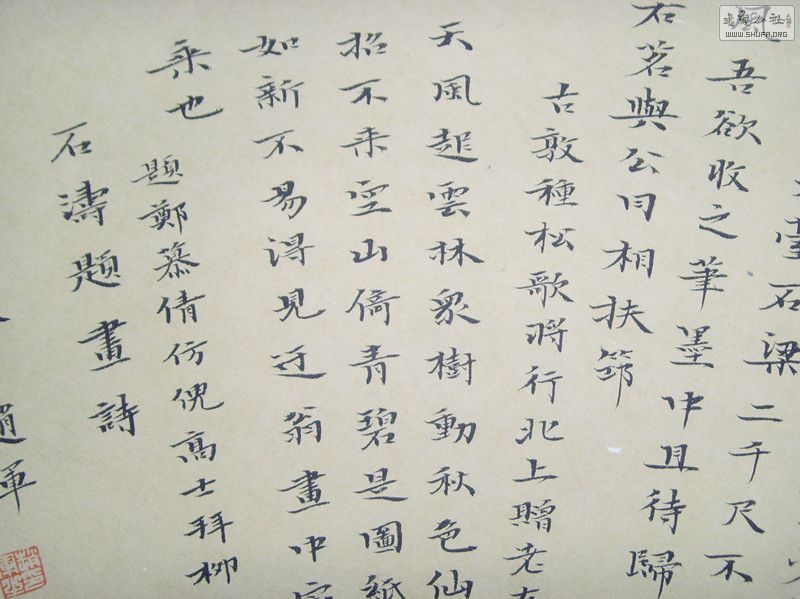 臺石梁二千尺不
風吾欲收之筆墨中且待歸
石茗與公同相扶筇
古敦種松歌將行北上贈老
天風起雲林眾樹動秋色仙
招不來空山倚青碧是圖紙
如新不易得見迂翁畫中
乘也
題鄭慕倩仿倪高士拜柳
石濤題畫詩
趙軍
WWW.SHUFA.ORG